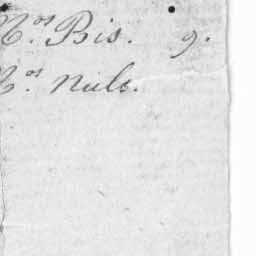 N.os Bis. 9.
N.os nule.